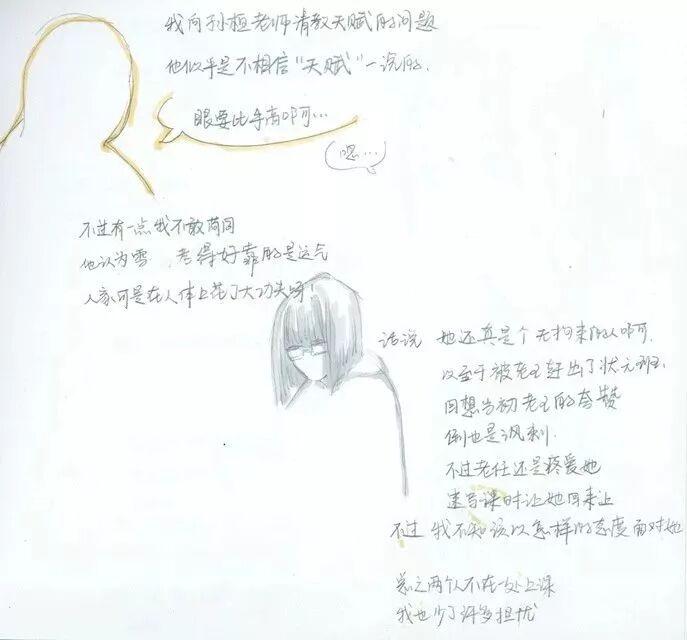 我向孙桓老师请教天赋的问题
他似乎是不相信“天赋”一说的.
眼要比手高吖可…
嗯…
不过有一点我不敢苟同
他认为雪 考得好靠的是运气
人家可是在人体上花了大功夫呀!
话说 她还真是个无拘束的人吖可.
以至于被老王轩出了状元班.
回想当初老王的夸赞
倒也是讽刺.
不过老任还是疼爱她
速写课时让她回来上
不过 我不知该以怎样的态度面对她
总之两个人不在一处上课
我也少了许多担忧